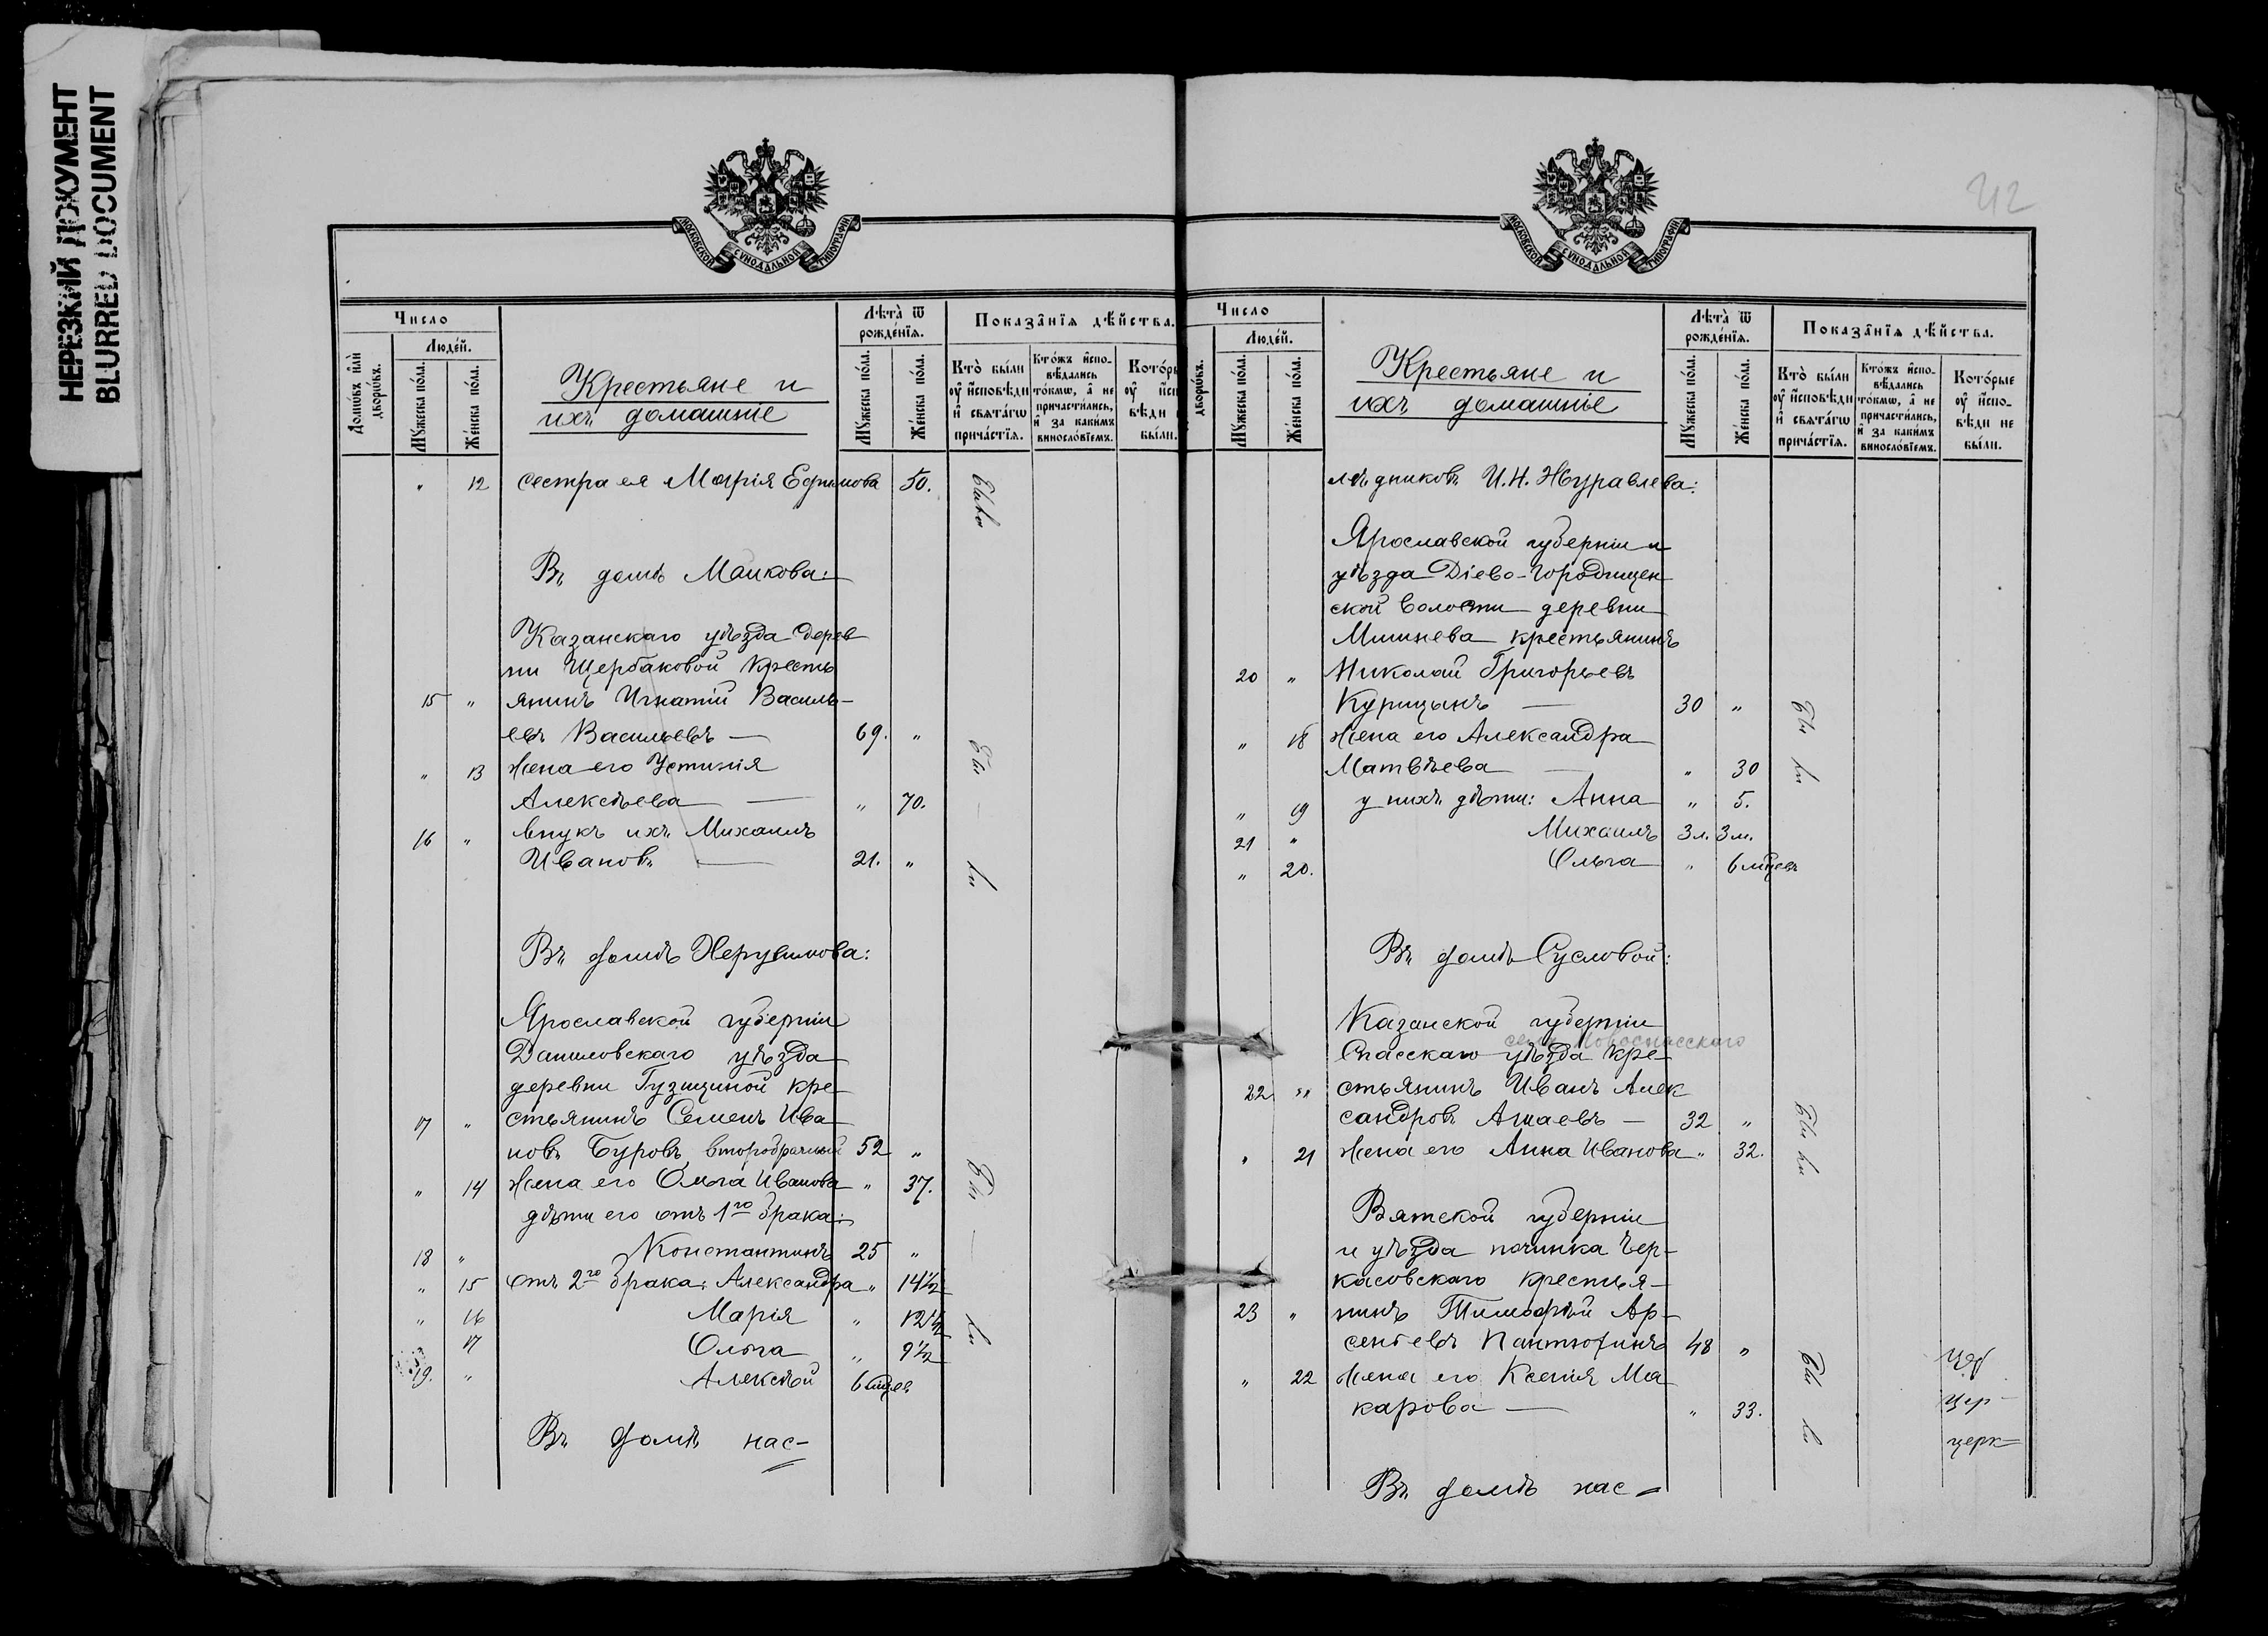 НЕРЕЗКИЙ ДОКУМЕНТ
BLURRED DOCUMENT
МОСКОВСКОЙ СѴНОДАЛЬНОЙ ТИПОГРАФІИ
Число
Людей.
Домѡвъ или дворѡвъ.
Мꙋжеска пола.
Женска пола.
Крестьяне и
ихъ домашніе
Лѣта ѿ рожденїѧ.
Мꙋжеска пола.
Женска пола.
Показанїѧ дѣйства.
Кто были ꙋ исповѣди и свѧтагѡ причастїѧ.
Ктожъ исповѣдались токмѡ, а не причастились, и за какимъ винословїемъ.
" 12 сестра ея Марія Ефимова 50. были
Въ домѣ Маикова:
Казанскаго уѣзда дерев
ни Щербаковой Кресть
15 " янинъ Игнатій Василь-
евъ Васильевъ — 69. "
" 13 Жена его Устинія
Алексѣева — " 70.
16 " Внукъ ихъ Михаилъ
Ивановъ — 21. "
Бы — ли
Въ домѣ Херувимова:
Ярославской губерніи
Даниловскаго уѣзда
деревни Гузициной кре-
17 " стьянинъ Семенъ Ива
новъ Буровъ второбрачный 52 "
" 14 Жена его Ольга Иванова " 37.
дѣти его отъ 1го брака:
18 " Константинъ 25 "
" 15 отъ 2го брака: Александра " 14½
" 16 Марія " 12½
17 Ольга " 9½
19. " Алексѣй 6 мцев
Бы — ли
Въ домѣ нас-
42
МОСКОВСКОЙ СѴНОДАЛЬНОЙ ТИПОГРАФІИ
Число
Людей.
дворѡвъ.
Мꙋжеска пола.
Женска пола.
Крестьяне и
ихъ домашніе
Лѣта ѿ рожденїѧ.
Мꙋжеска пола.
Женска пола.
Показанїѧ дѣйства.
Кто были ꙋ исповѣди и свѧтагѡ причастїѧ.
Ктожъ исповѣдались токмѡ, а не причастились, и за какимъ винословїемъ.
Которые ꙋ исповѣди не были.
лѣдниковъ И. Н. Журавлева:
Ярославской губерніи и
уѣзда Діево-Городищен
ской волости деревни
Мишнева крестьянинъ
20 " Николай Григорьевъ
Курицынъ — 30 "
" 18 Жена его Александра
Матвѣева — " 30
" 19 у нихъ дѣти: Анна " 5.
21 " Михаилъ 3 л. 3 м.
" 20. Ольга " 6 мцевъ
Бы ли
Въ домѣ Сусловой:
Казанской губерніи
села Новоспасскаго
Спасскаго уѣзда кре-
22 " стьянинъ Иванъ Алек
сандровъ Ашаевъ — 32 "
" 21 Жена его Анна Иванова " 32.
Бы ли
Вятской губерніи
и уѣзда починка Чер-
касовскаго крестья-
23 " нинъ Тимофѣй Ар-
сеньевъ Пантюхинъ 48 "
" 22 Жена его Ксенія Ма
карова — " 33.
Бы ли
цер-
церк-
Въ домѣ нас-